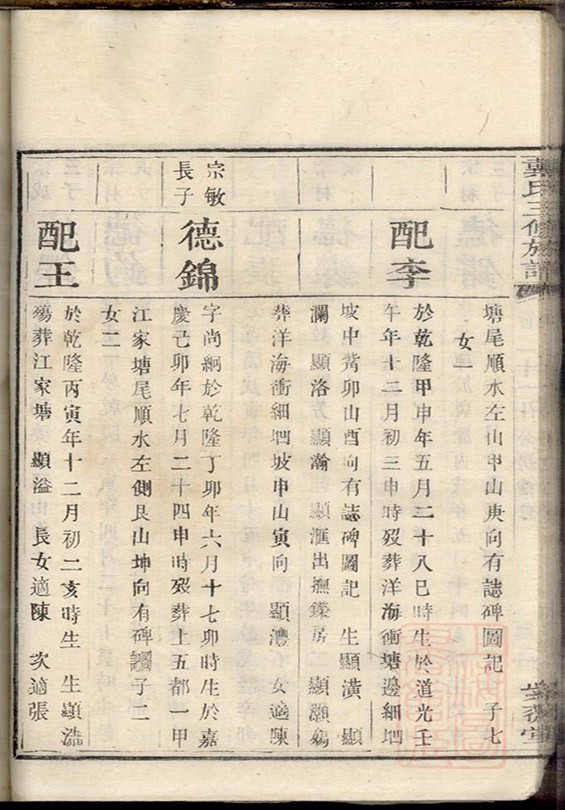 龔氏三修族譜
塘尾順水左山申山庚向有誌碑圖記 子七
女一
配李
於乾隆甲申年五月二十八巳時生於道光壬
午年十二月初三申時歿葬洋海衝塘邊細垇
坡中嘴卯山酉向有誌碑圖記 生顯潢 顯
瀾 顯洛 顯瀚 顯滙出撫鑅房 顯灝殤
葬洋海衝細垇坡申山寅向 顯澧 女適陳
宗敏
長子
德錦
字尚綱於乾隆丁卯年六月十七卯時生於嘉
慶己卯年七月二十四申時歿葬上五都一甲
江家塘尾順水左側艮山坤向有碑 子二
女二
配王
於乾隆丙寅年十二月初二亥時生 生顯浩
殤葬江家塘 顯溢 長女適陳 次適張